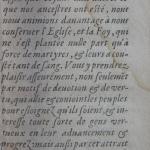 que noz ancestres ont esté, nous
nous animions dauantage à nous
conseruer l'Eglise, et la Foy, qui
ne s'est plantée nulle part qu'à
force de martyres, et leurs a cou-
sté tant de sang. Vous y prendrez
plaisir asseurément, non seulemēt
par motif de deuotion & de ver-
tu, qui allie et conioint les peuples
pour esloignez qu'ils soient, & in-
teresse toute sorte de gens ver-
tueux en leur aduancement &
progrez, mais aussi par cet attrait